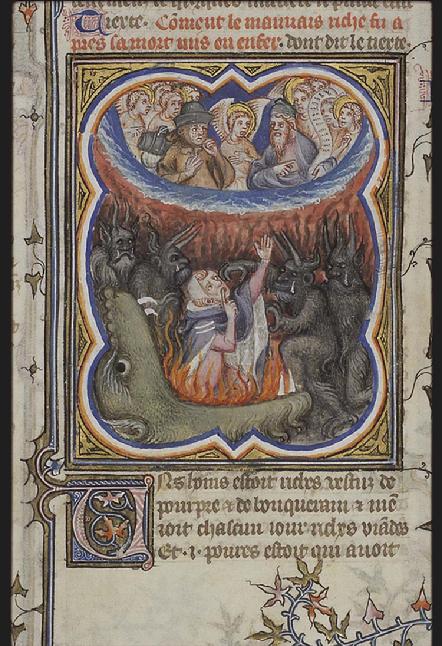 Tierte. Coment le mauuais riche fu a
pres sa mort mis en enfer. dont dit le tierte.
Uns homs estoit riches vestuz de
pourpre & de bouquerain & men
ioit chascun iour riches viandes
Et .i. poures estoit qui auoit